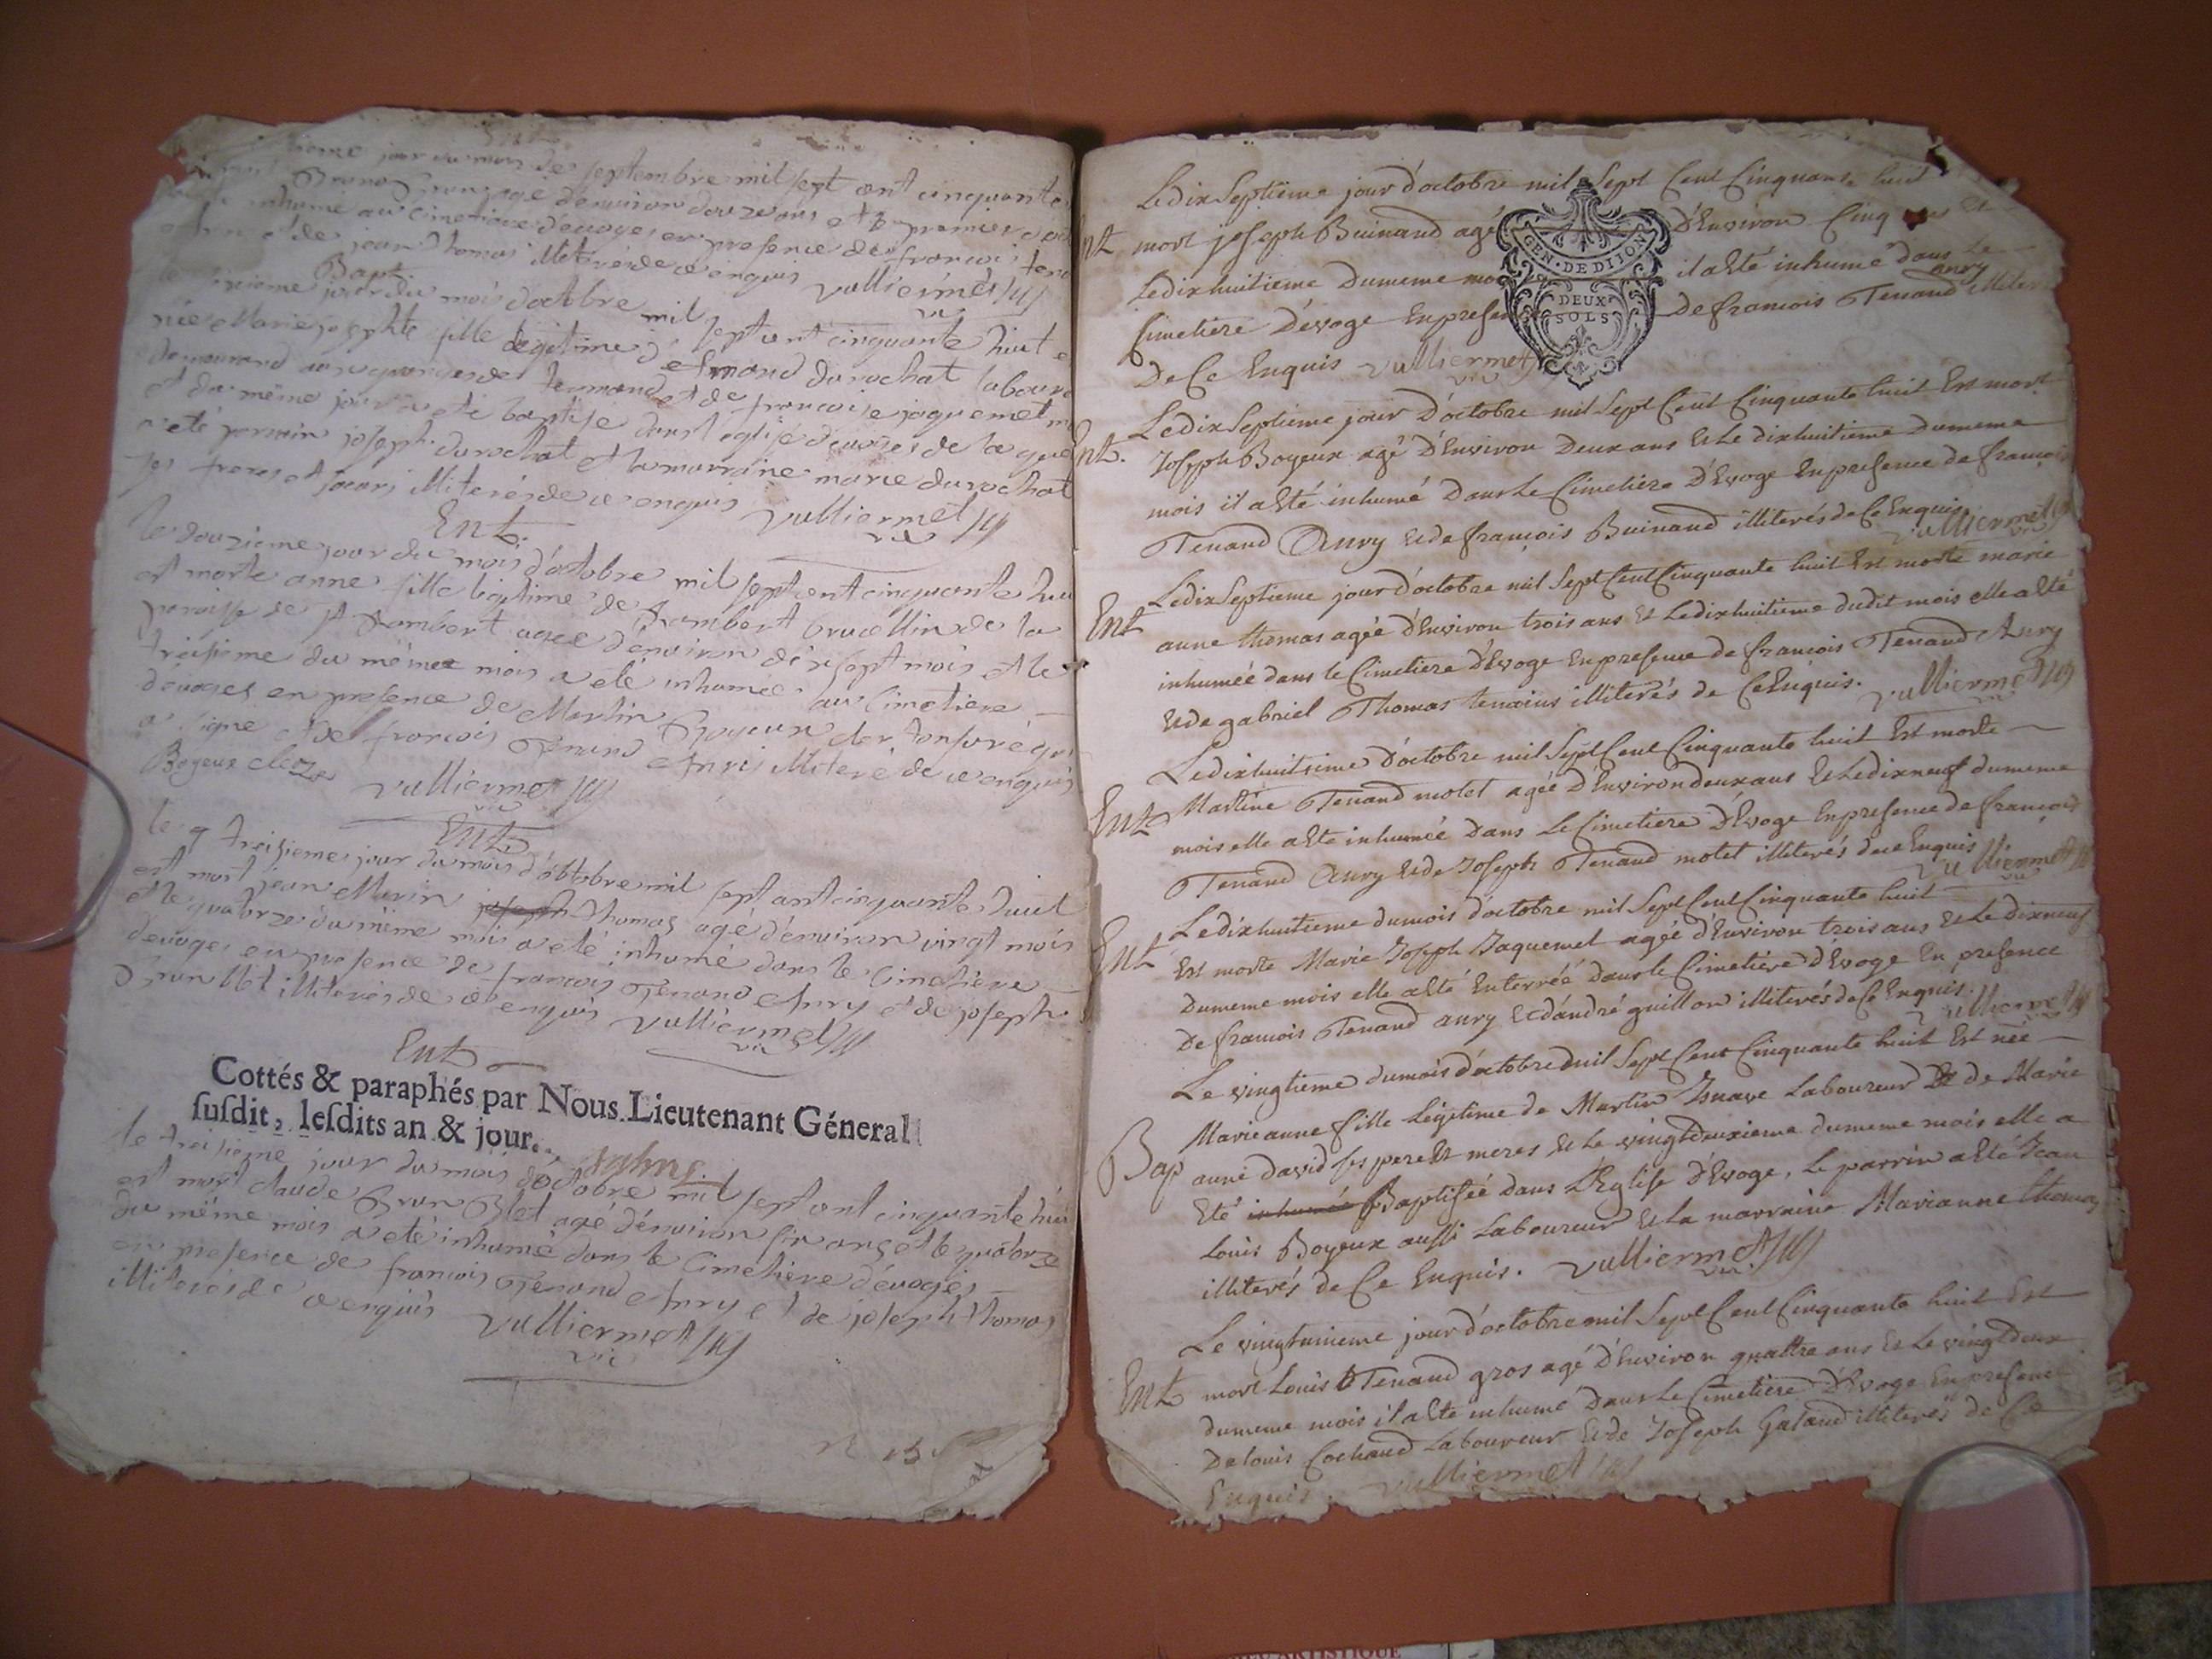 jour du mois de septembre mil sept cent cinquante
agé denviron douze ans et le premier
inhumé au cimetiere dévoges en presence de francois tenand
et de jean thomas illiterés de ce enquis vulliermet
Bapt
jour du mois doctobre mil sept cent cinquante huit
née Marie josephte fille legitime d'etmond durochat laboureur
demeurand et de francoise jaquemet
et du même jour a eté baptisé dans l'eglise dévoges de la quelle
a eté parrain joseph durochat et la marraine marie durochat
ses freres et soeurs illiterés de ce enquis vulliermet
vic
Ent.
le douzieme jour du mois d'octobre mil sept cent cinquante huit
est morte anne fille legitime de Rambert brucellin de la
paroisse de st Rambert agee d'environ dix sept mois et le
treisieme du même mois a eté inhumée au Cimetiere
dévoges en presence de Martin Boyeux clerc tonsuré qui
a signé et de francois Tenand Anry illiteré de ce enquis
Boyeux clerc vulliermet
vic
Ent.
le treisieme jour du mois d'octobre mil sept cent cinquante huit
est mort jean Marin joseph thomas agé d'environ vingt mois
et le quatorze du même mois a eté inhumé dans le Cimetiere
dévoges en presence de francois Tenand Anry et de joseph
Brun blet illiterés de ce enquis vulliermet
vic
Ent
Cottés & paraphés par Nous Lieutenant Géneral
suſdit, leſdits an & jour.
le treisieme jour du mois d'octobre mil sept cent cinquante huit
est mort claude Brun Blet agé d'environ six ans et le quatorze
du même mois a eté inhumé dans le Cimetiere dévoges
en presence de francois Tenand Anry et de joseph thomas
illiterés de ce enquis vulliermet
vic
Le dix Septieme jour d'octobre mil Sept Cent Cinquante huit
Ent mort joseph Buinand agé D'Environ Cinq ans Et
Le dix huitieme Dumeme mois il a Eté inhumé dans Le
Cimetiere D'Evoge En presence De francois Tenand anry
De Ce Enquis vulliermet
GEN. DE DIION
DEUX
SOLS
Le dix Septieme jour D'octobre mil Sept Cent Cinquante huit Est mort
Ent. Joseph Boyeux agé D'Environ Deux ans Et Le dix huitieme Dumeme
mois il a Eté inhumé Dans Le Cimetiere D'Evoge En presence de francois
Tenand Anry Et de francois Buinand illiterés de Ce Enquis
vulliermet
Le dix Septieme jour d'octobre mil Sept Cent Cinquante huit Est morte marie
Ent anne thomas agée d'Environ trois ans Et Le dix huitieme dudit mois elle a Eté
inhumée dans le Cimetiere D'Evoge En presence de francois Tenand Anry
Et de gabriel Thomas temoins illiterés de Ce Enquis. vulliermet
Le dix huitieme D'octobre mil Sept Cent Cinquante huit Est morte
Ent Martine Tenand molet agée d'Environ deux ans Et Le dix neuf dumeme
mois elle a Eté inhumée Dans Le Cimetiere D'Evoge En presence de francois
Tenand Anry Et de Joseph Tenand molet illiterés de ce Enquis
vulliermet
Le dix huitieme du mois d'octobre mil Sept Cent Cinquante huit
Ent Est morte Marie Joseph Jaquemet agée d'Environ trois ans Et Le Dix neuf
Dumeme mois elle a Eté Enterréé dans le Cimetiere D'Evoge En presence
De francois Tenand anry Et d'andré guillon illiterés de Ce Enquis.
vulliermet
Le vingtieme du mois d'octobre mil Sept Cent Cinquante huit Est née
Marie anne fille Légitime de Martin Laboureur Et de Marie
Bap anne david ses pere Et meres Et Le vingt deuxieme dumeme mois elle a
Eté inhumée Baptiséé dans L'Eglise d'Evoge, Le parrin a Eté Jean
Louis Boyeux aussi Laboureur Et La marraine Marianne thomas
illiterés de Ce Enquis. vulliermet
vic.
Le vingt unieme jour d'octobre mil Sept Cent Cinquante huit Est
Ent mort Louis Tenand gros agé D'Environ quattre ans Et Le vingt deux
dumeme mois il a Eté inhumé Dans Le Cimetiere D'Evoge En presence
De louis Cochand Laboureur Et de Joseph Galand illiterés de Ce
Enquis. vulliermet